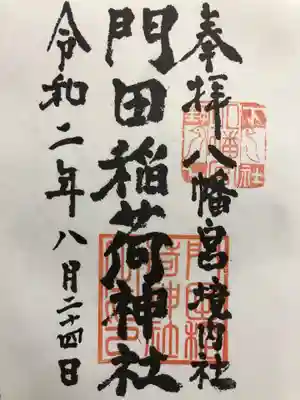 奉拝 八幡宮境内社
門田稲荷神社
令和二年八月二十四日